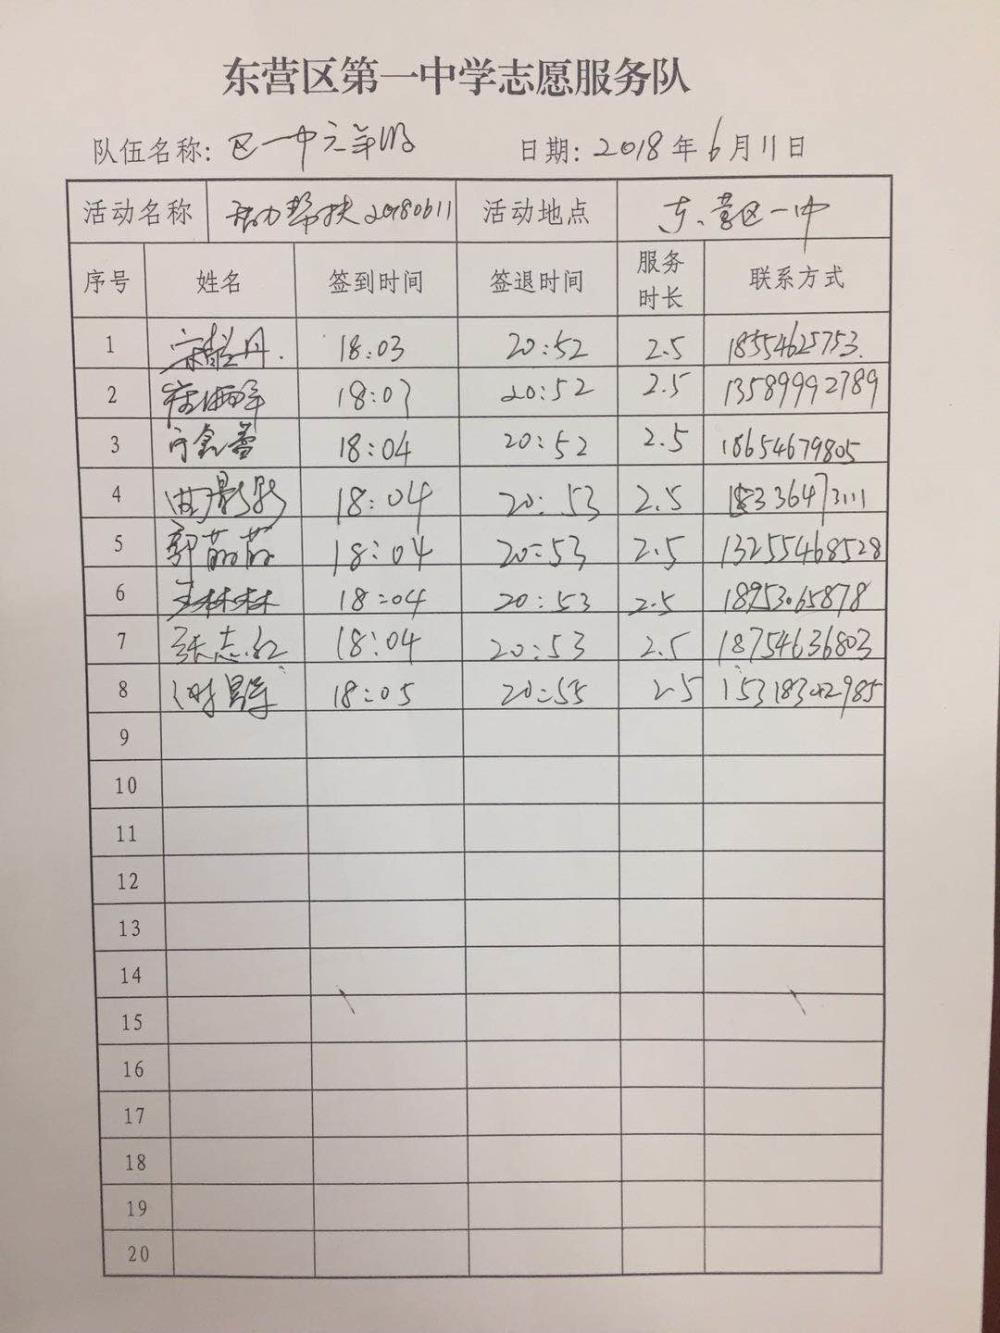 东营区第一中学志愿服务队
队伍名称: 区一中 日期: 2018年6月11日
活动名称 帮扶20180611 活动地点 东营区一中
序号 姓名 签到时间 签退时间 服务时长 联系方式
1 18:03 20:52 2.5 18554625753
2 18:03 20:52 2.5 13589992789
3 18:04 20:52 2.5 18654679805
4 曲影影 18:04 20:53 2.5
5 郭茹茹 18:04 20:53 2.5 13255468528
6 王林林 18:04 20:53 2.5 18953065878
7 张志红 18:04 20:53 2.5 18754636803
8 18:05 20:55 2.5 15318302985
9
10
11
12
13
14
15
16
17
18
19
20